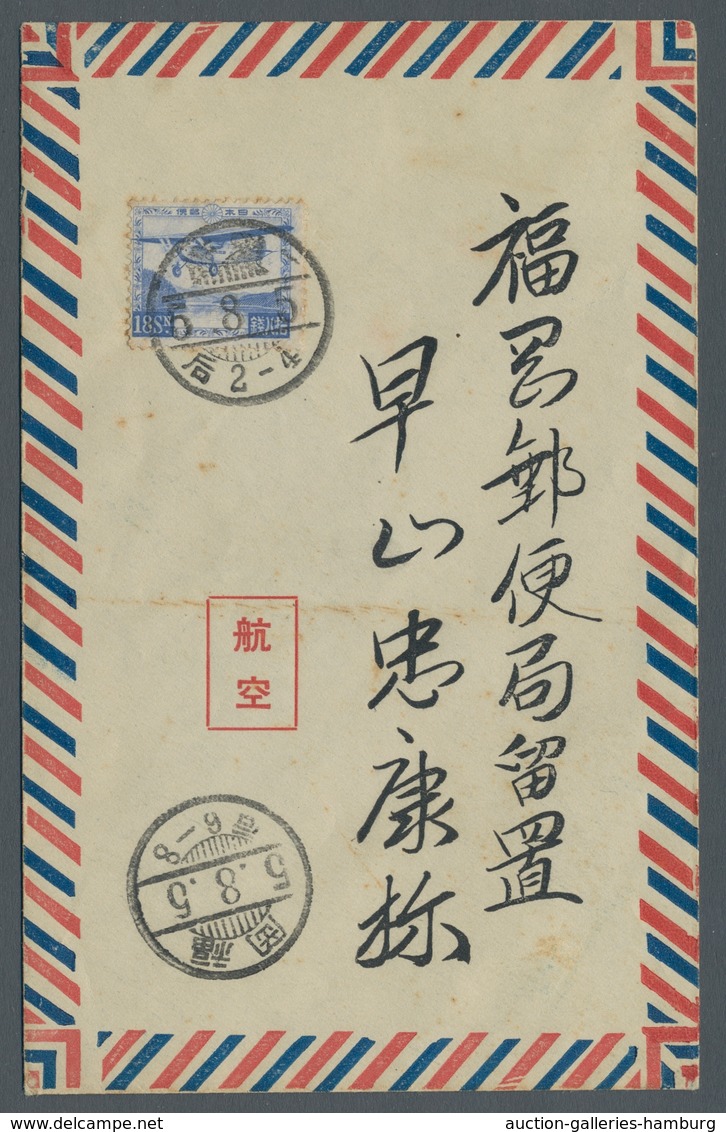 福岡郵便局留置
早山忠康様
日本郵便
18Sn.
5.8.5
后2-4
航空
福岡
5.8.5
后6-8
auction-galleries-hamburg